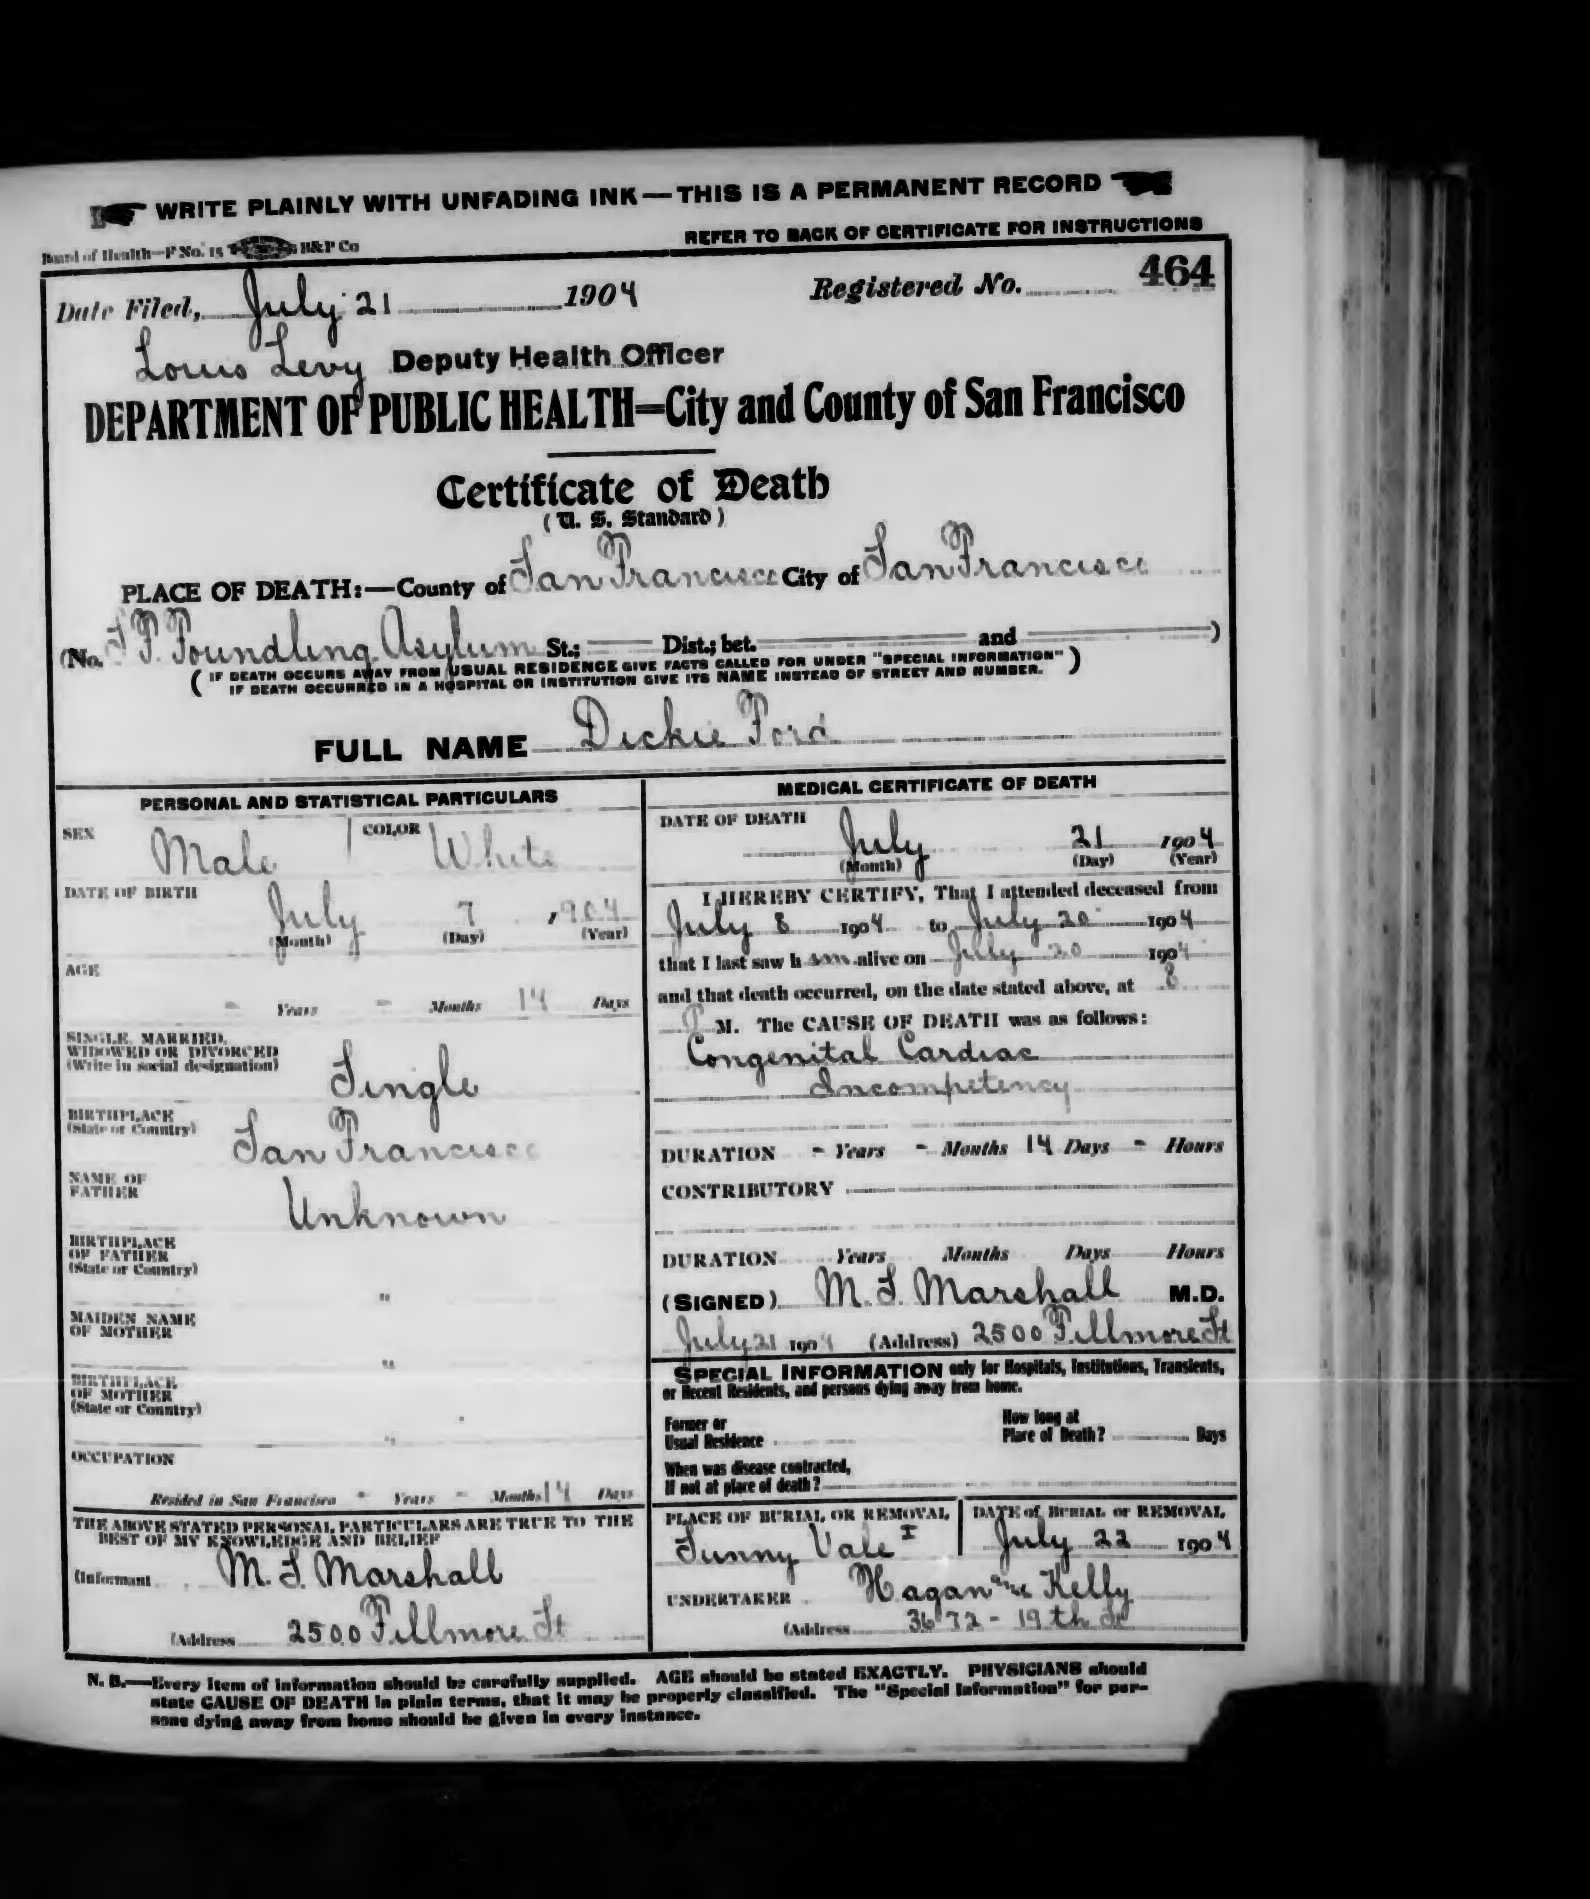 WRITE PLAINLY WITH UNFADING INK — THIS IS A PERMANENT RECORD
Board of Health—F No. 15 H&P Co REFER TO BACK OF CERTIFICATE FOR INSTRUCTIONS
Date Filed, July 21 1904 Registered No. 464
Louis Levy Deputy Health Officer
DEPARTMENT OF PUBLIC HEALTH=City and County of San Francisco
Certificate of Death
(U. S. Standard)
PLACE OF DEATH:—County of San Francisco City of San Francisco
(No. S F. Foundling Asylum St.; Dist.; bet. and )
( IF DEATH OCCURS AWAY FROM USUAL RESIDENCE GIVE FACTS CALLED FOR UNDER "SPECIAL INFORMATION" )
( IF DEATH OCCURRED IN A HOSPITAL OR INSTITUTION GIVE ITS NAME INSTEAD OF STREET AND NUMBER.
FULL NAME Dickie Ford
PERSONAL AND STATISTICAL PARTICULARS
SEX Male COLOR White
DATE OF BIRTH
July 7 1904
(Month) (Day) (Year)
AGE
- Years - Months 14 Days
SINGLE, MARRIED,
WIDOWED OR DIVORCED
(Write in social designation) Single
BIRTHPLACE
(State or Country) San Francisco
NAME OF
FATHER Unknown
BIRTHPLACE
OF FATHER
(State or Country)
"
MAIDEN NAME
OF MOTHER
"
BIRTHPLACE
OF MOTHER
(State or Country)
"
OCCUPATION
Resided in San Francisco - Years - Months 14 Days
THE ABOVE STATED PERSONAL PARTICULARS ARE TRUE TO THE
BEST OF MY KNOWLEDGE AND BELIEF
(Informant M. S. Marshall
(Address 2500 Fillmore St
MEDICAL CERTIFICATE OF DEATH
DATE OF DEATH
July 21 1904
(Month) (Day) (Year)
I HEREBY CERTIFY, That I attended deceased from
July 8 1904 to July 20 1904
that I last saw him alive on July 20 1904
and that death occurred, on the date stated above, at 8
P M. The CAUSE OF DEATH was as follows:
Congenital Cardiac
Incompetency
DURATION - Years - Months 14 Days - Hours
CONTRIBUTORY
DURATION Years Months Days Hours
(SIGNED) M. S. Marshall M.D.
July 21 1904 (Address) 2500 Fillmore St
SPECIAL INFORMATION only for Hospitals, Institutions, Transients,
or Recent Residents, and persons dying away from home.
Former or
Usual Residence
How long at
Place of Death? Days
When was disease contracted,
If not at place of death?
PLACE OF BURIAL OR REMOVAL
Sunny Vale I
DATE of BURIAL or REMOVAL
July 22 1904
UNDERTAKER Hagan and Kelly
(Address 3672 - 19th St
N. B.—Every item of information should be carefully supplied. AGE should be stated EXACTLY. PHYSICIANS should
state CAUSE OF DEATH in plain terms, that it may be properly classified. The "Special Information" for per-
sons dying away from home should be given in every instance.